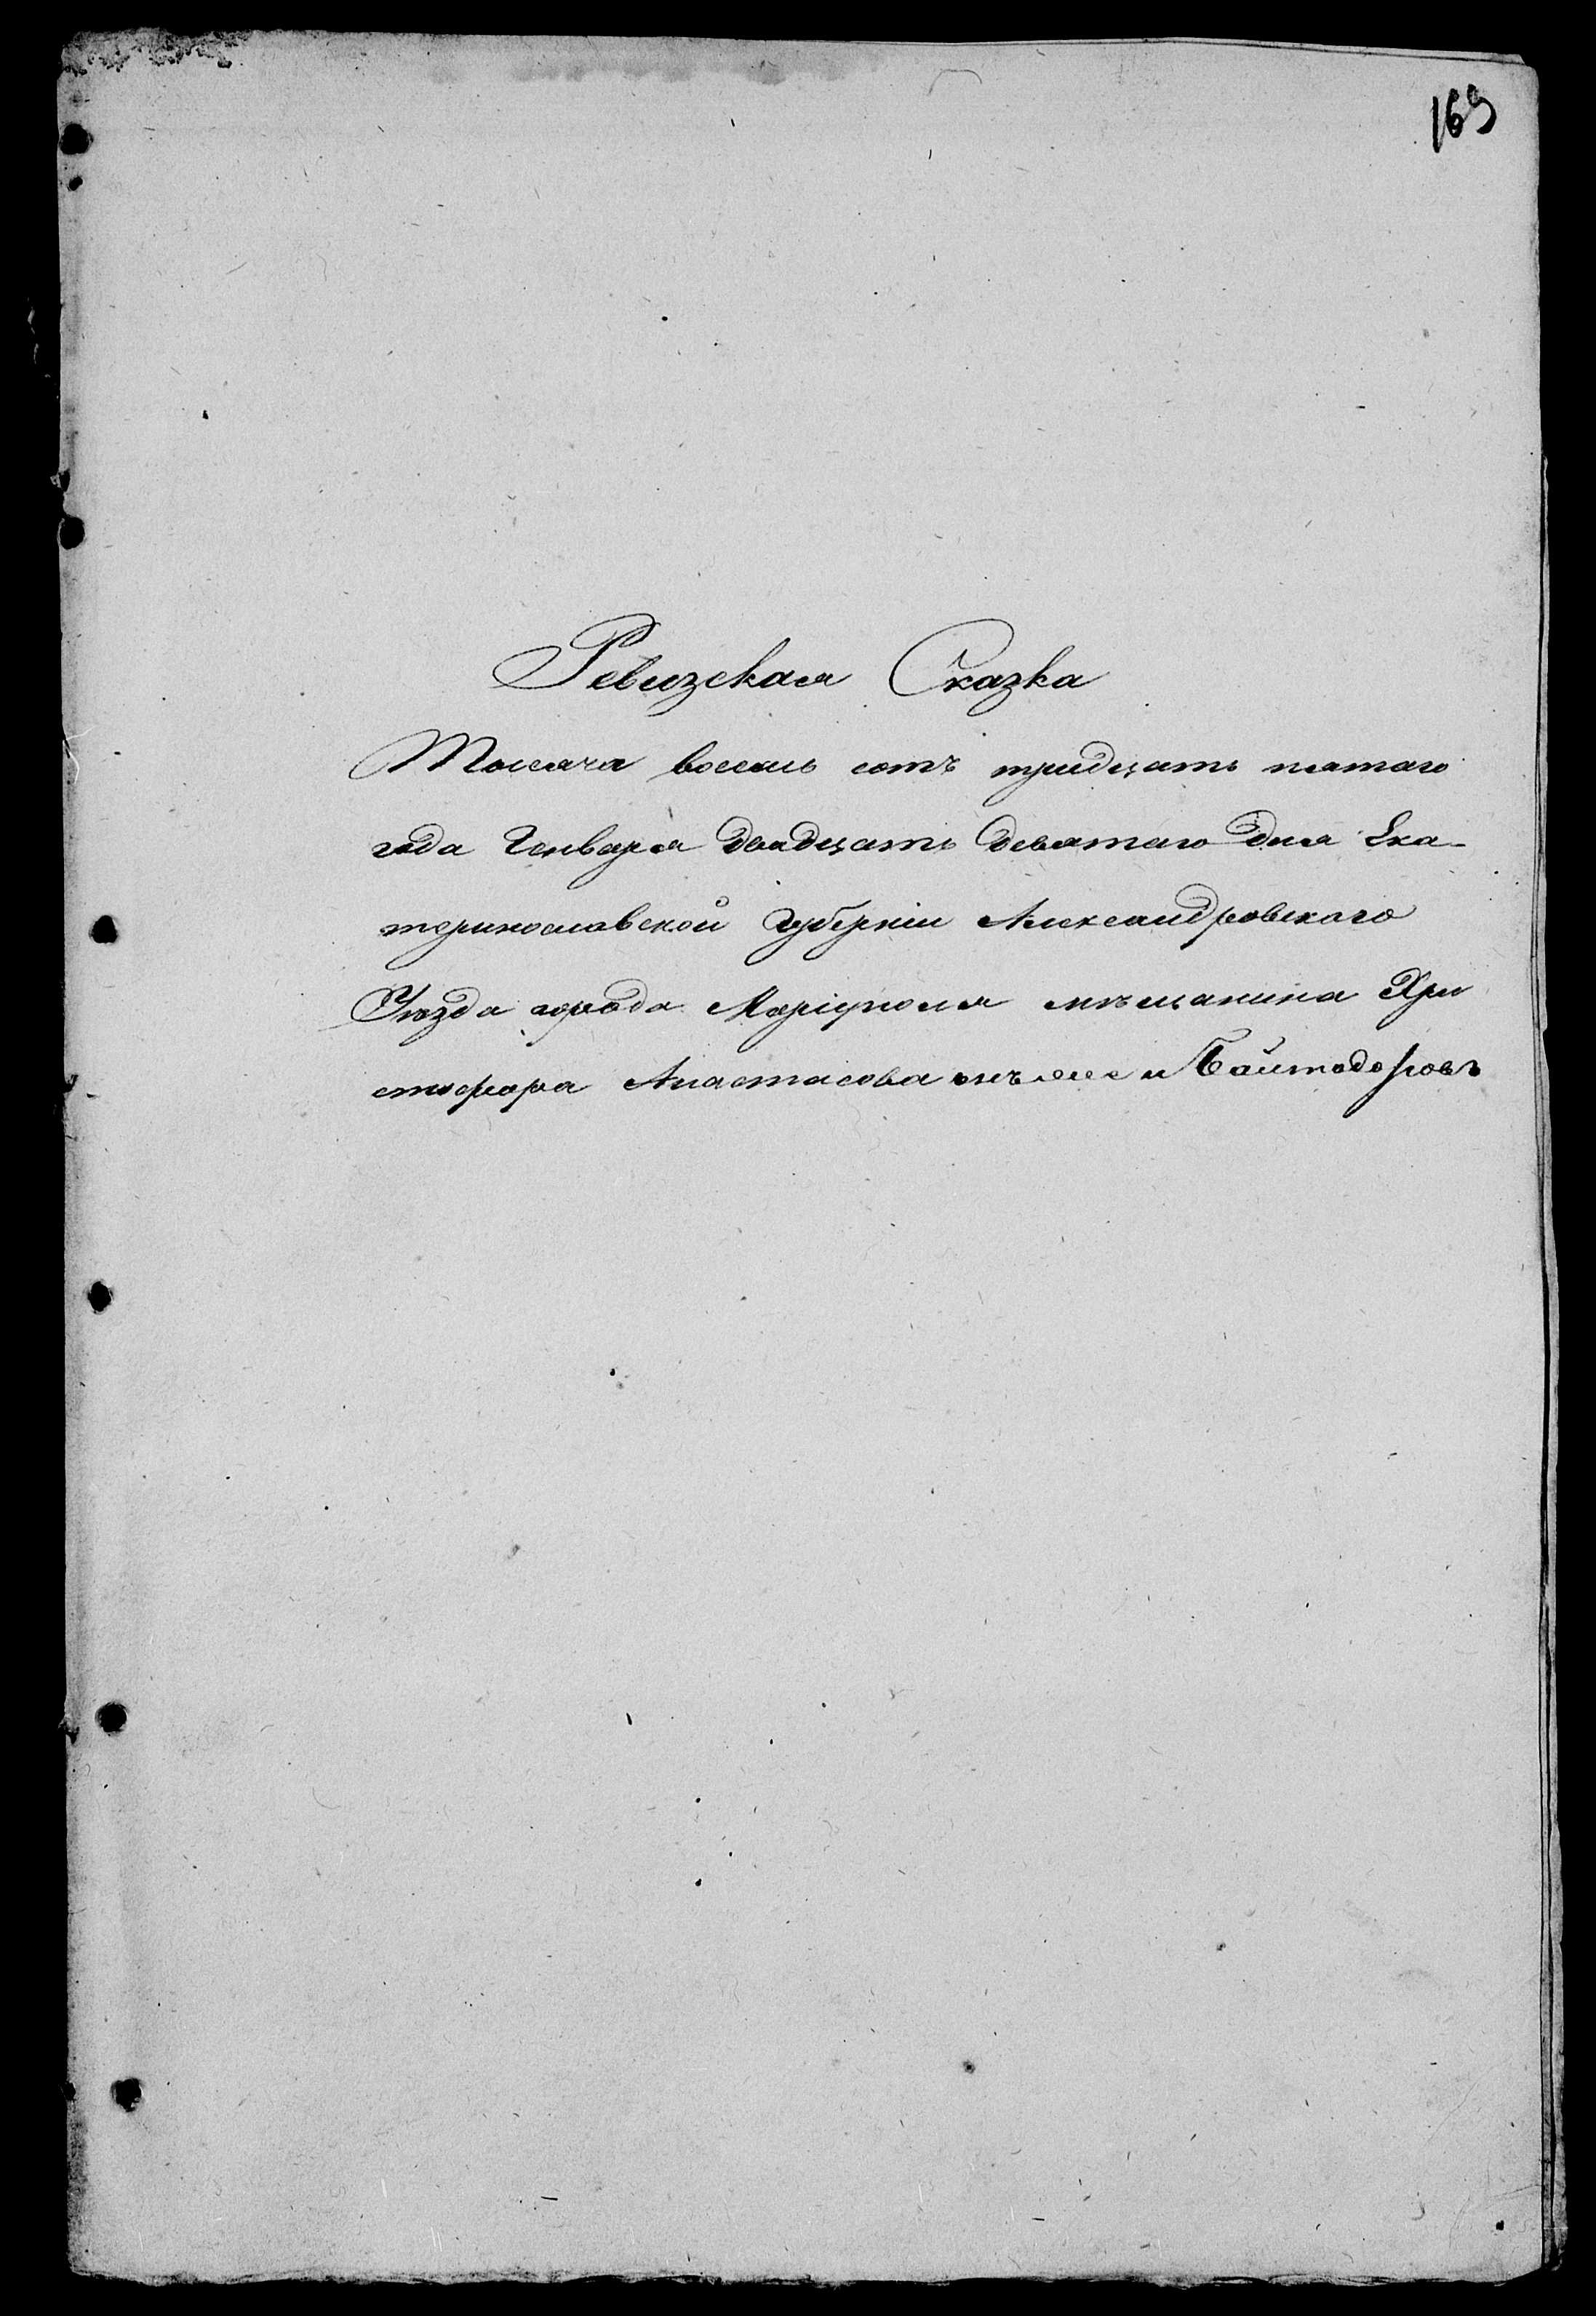 169
Ревизская Сказка
Тысяча восемь сотъ тридцать пятаго
года Генваря двадцать девятаго дня Ека-
теринославской губерніи Александровскаго
Уѣзда города Маріуполя мѣщанина Хри
стофора Анастасова Байтодоровъ